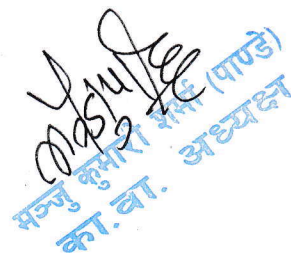 मञ्जु कुमारी शर्मा (पाण्डे)
का.वा. अध्यक्ष